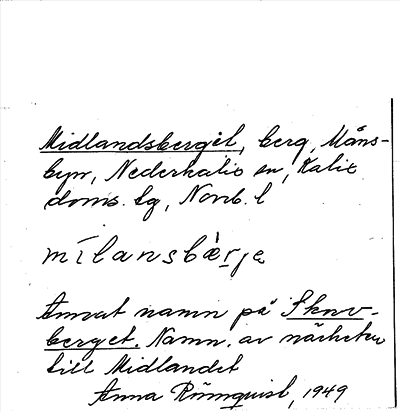 Midlandsberget, berg, Måns-
byn, Nederkalix sn, Kalix
doms. lg, Norrb. l
mílansbæ̀rje
Annat namn på Skruv-
berget. Namn. av närheten
till Midlandet
Anna Rönnquist, 1949